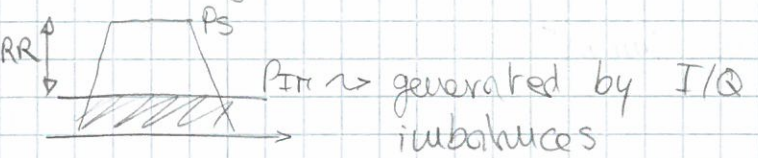 Ps
RR
PIM ~> generated by I/Q
imbalances